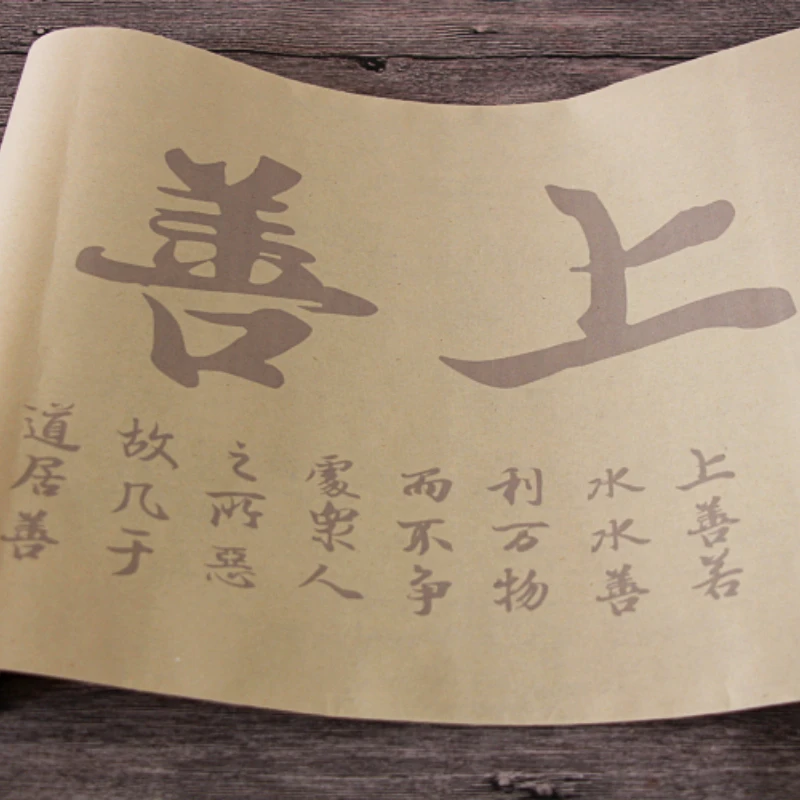 上善
上善若
水水善
利万物
而不争
處衆人
之所惡
故几于
道居善